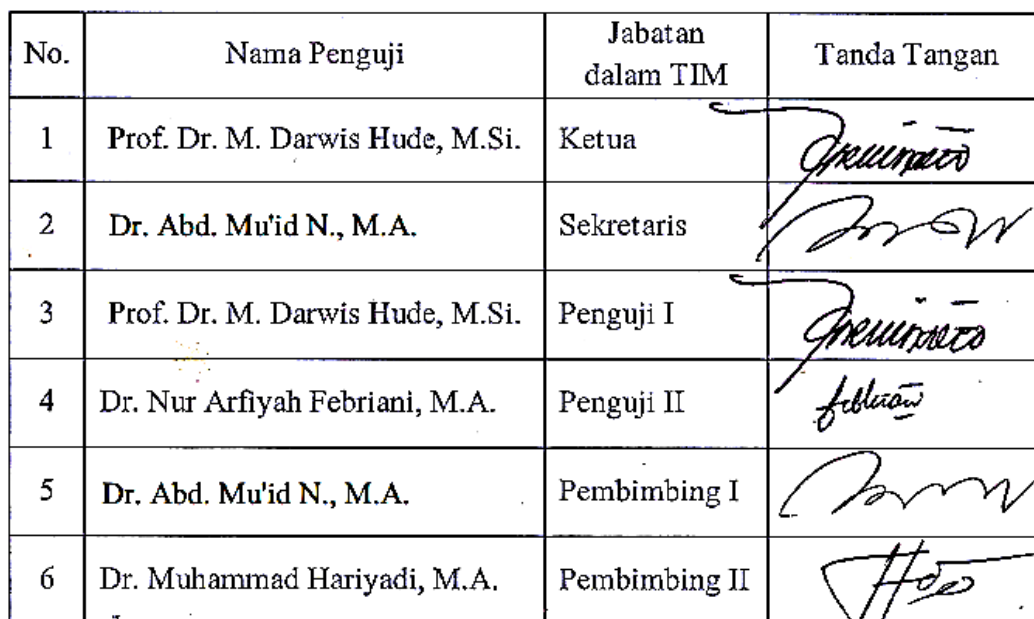 No. Nama Penguji Jabatan dalam TIM Tanda Tangan
1 Prof. Dr. M. Darwis Hude, M.Si. Ketua
2 Dr. Abd. Mu'id N., M.A. Sekretaris
3 Prof. Dr. M. Darwis Hude, M.Si. Penguji I
4 Dr. Nur Arfiyah Febriani, M.A. Penguji II
5 Dr. Abd. Mu'id N., M.A. Pembimbing I
6 Dr. Muhammad Hariyadi, M.A. Pembimbing II